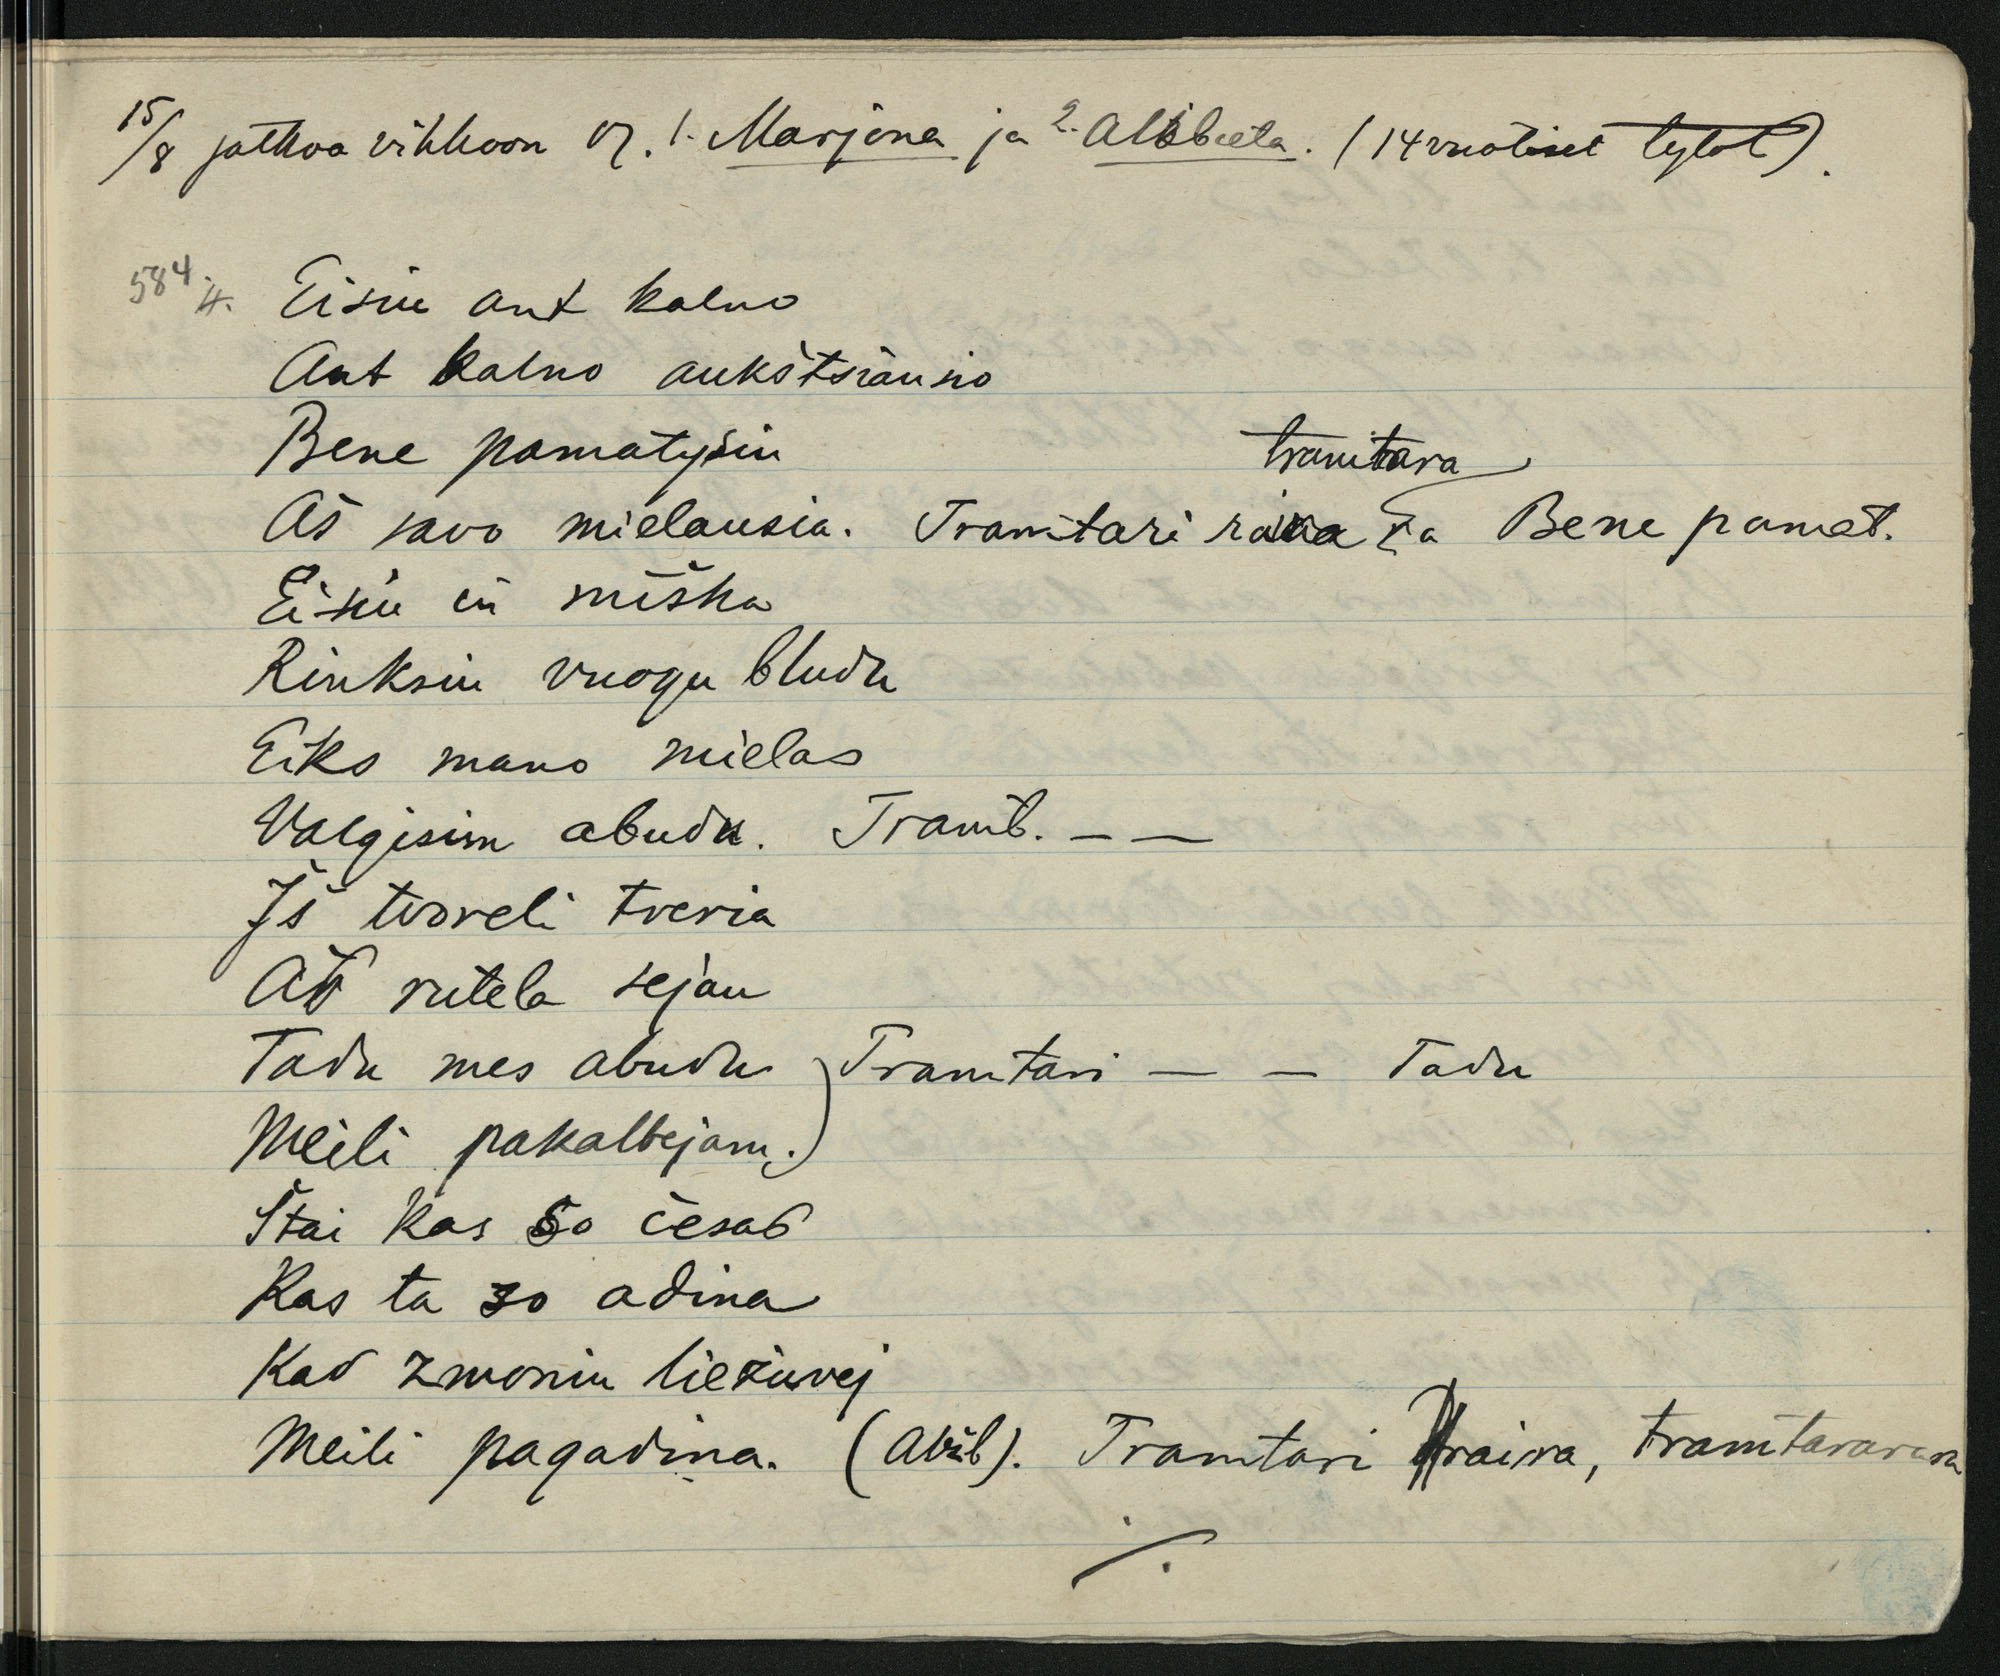 15/8 jatkoa vihkoon 07. 1. Marjona ja 2. Alžbieta. (14 vuotiset tytöt).
584 4. Eisiu ant kalno
Ant kalno aukštsiausio
Bene pamatysiu
tramtara
Aš savo mielausia. Tramtari raira ra Bene pamat.
Eisiu iń miška
Rinksiu vuogu bludu
Eiks mano mielas
Valgisim abudu. Tramt. — —
Iš tvoreli tveria
Aš rutela sejau
Tadu mes abudu) Tramtari — — Tadu
Meili pakalbejam.)
Štai kas so česas
Kas ta so adina
Kad zmoniu liežuvej
Meili pagadina. (Alžb). Tramtari raira, tramtararara